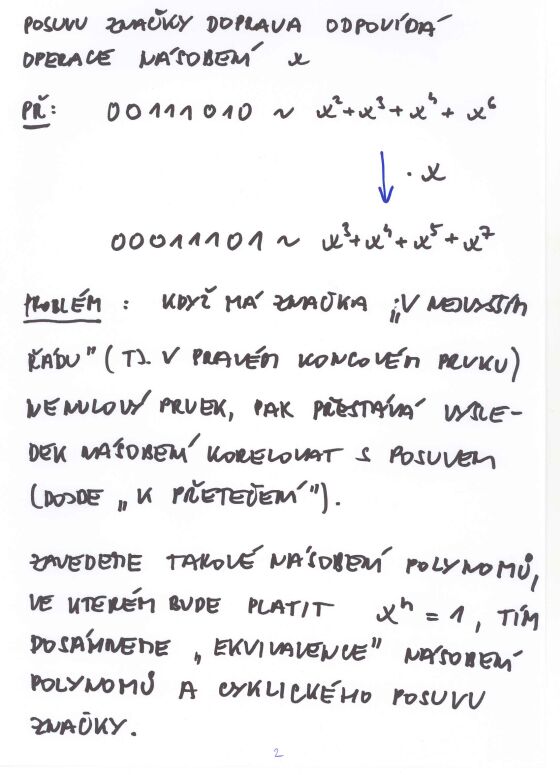 POSUVU ZNAČKY DOPRAVA ODPOVÍDÁ
OPERACE NÁSOBENÍ x
PŘ: 00111010 ~ x²+x³+x⁴+x⁶
· x
00011101 ~ x³+x⁴+x⁵+x⁷
PROBLÉM : KDYŽ MÁ ZNAČKA „V NEJVYŠŠÍM
ŘÁDU" (TJ. V PRAVÉM KONCOVÉM PRVKU)
NENULOVÝ PRVEK, PAK PŘESTÁVÁ VÝSLE-
DEK NÁSOBENÍ KORELOVAT S POSUVEM
(DOJDE „K PŘETEČENÍ").
ZAVEDEME TAKOVÉ NÁSOBENÍ POLYNOMŮ,
VE KTERÉM BUDE PLATIT xⁿ = 1, TÍM
DOSÁHNEME „EKVIVALENCE" NÁSOBENÍ
POLYNOMŮ A CYKLICKÉHO POSUVU
ZNAČKY.
2